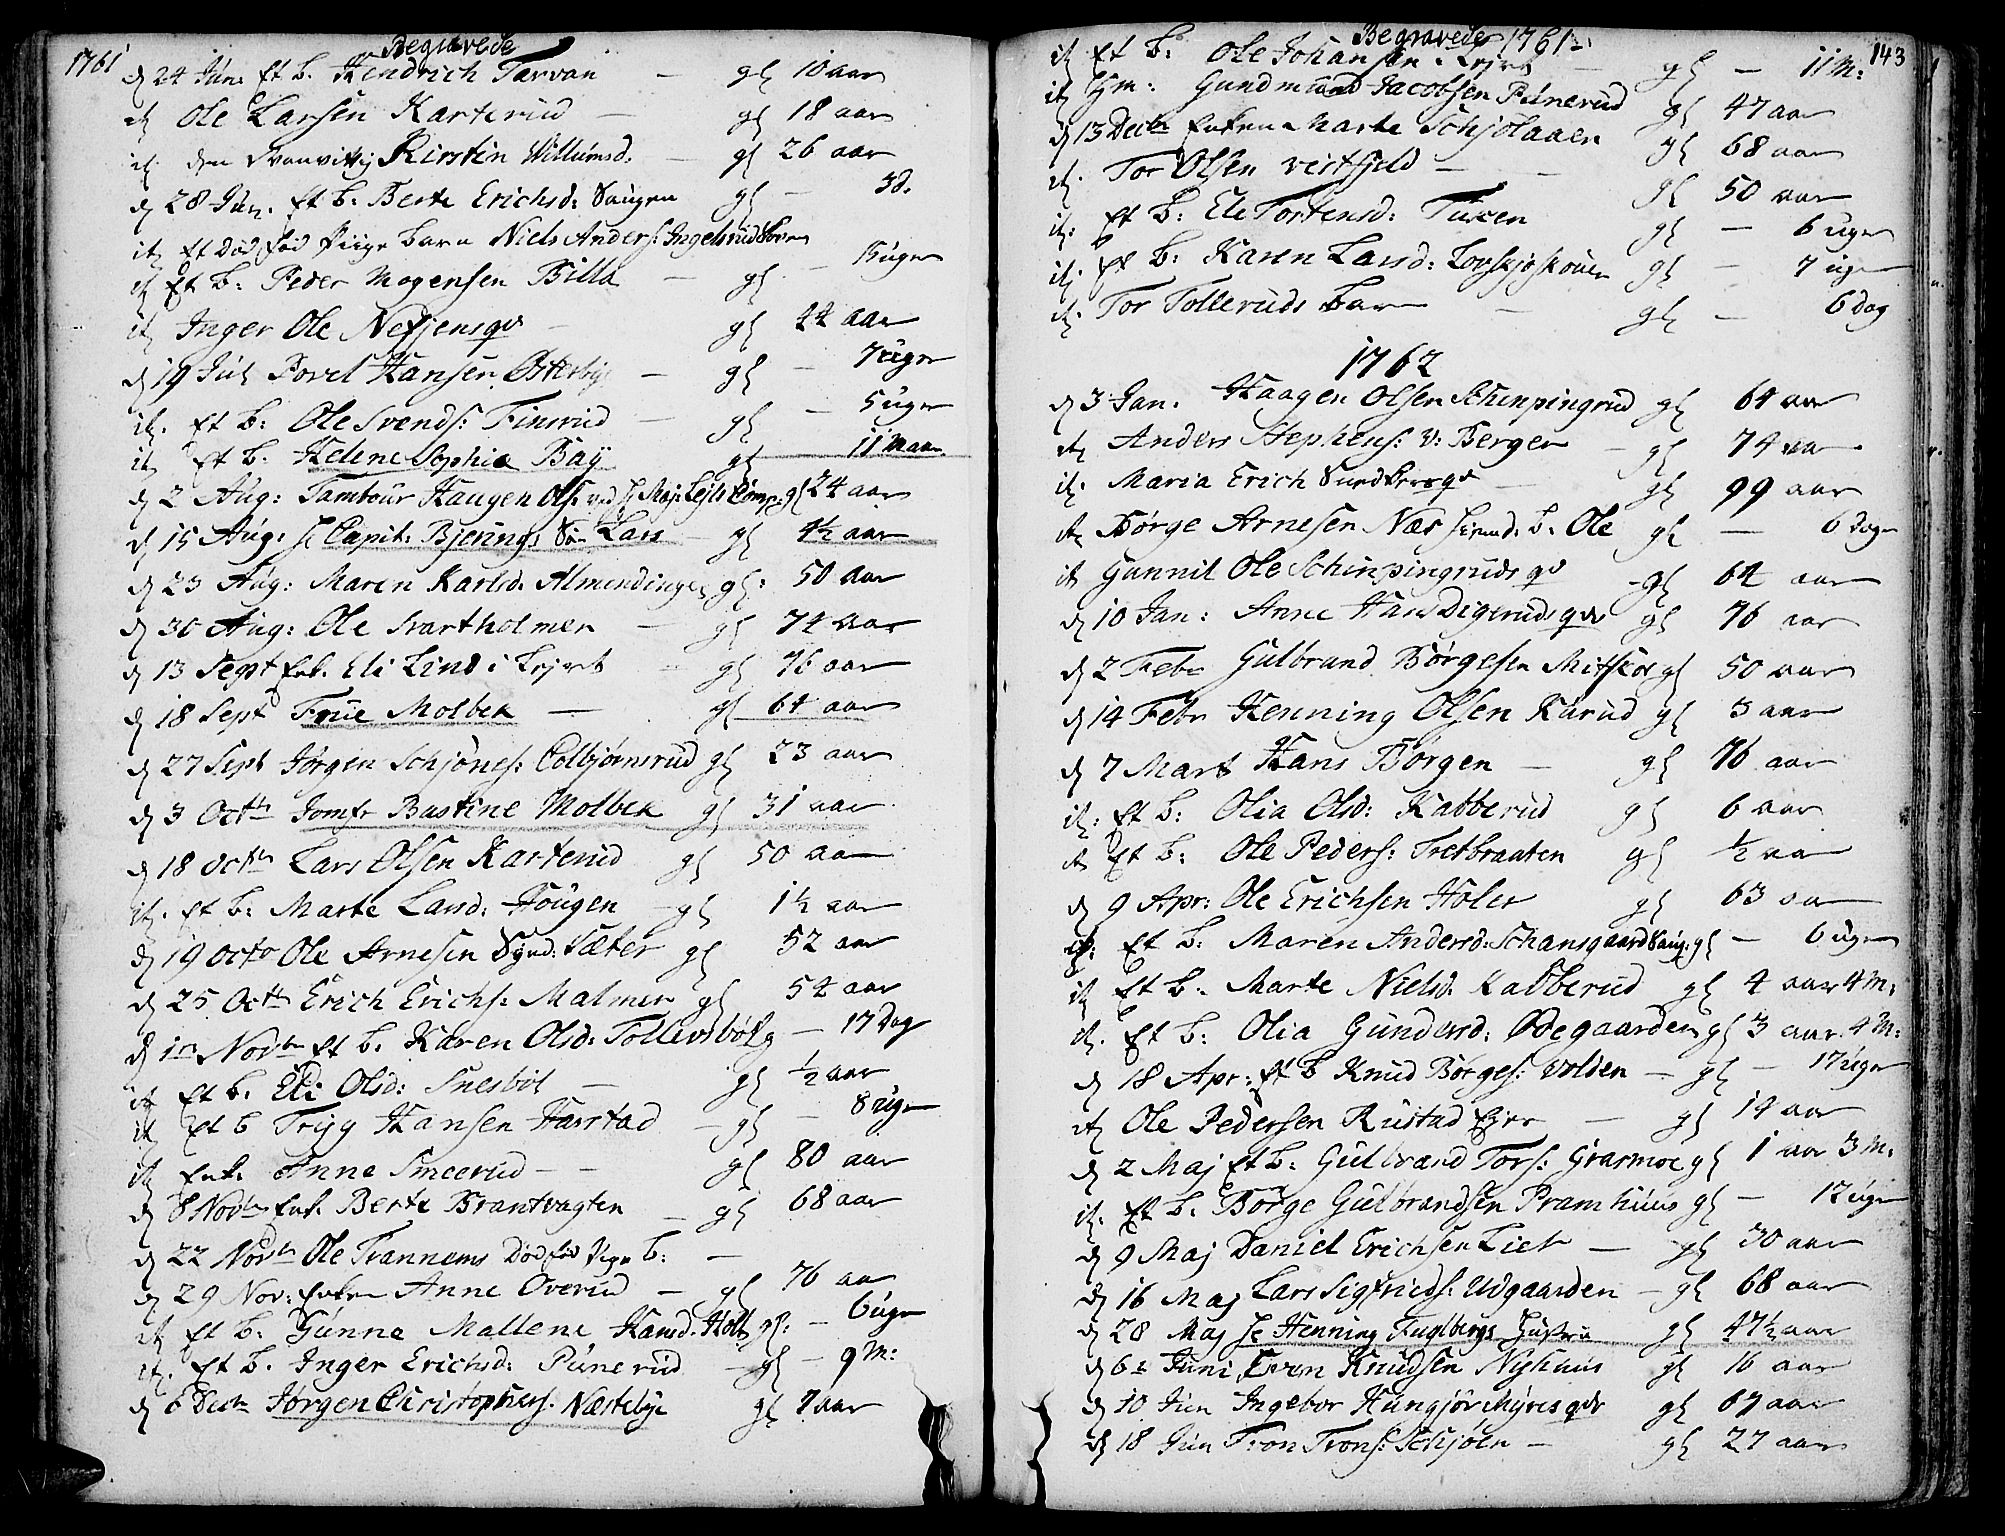 1761
Begravede
d 24 Jun: Et B. Hendrich Tarvan - gl 10 aar
it Ole Larsen Karterud - gl 18 aar
it. den vanvittig Kirstin Villumsd. - gl 26 aar
d 28 Jun. Et B. Berte Erichsd: Haugen gl - 3 d.
it Et Død fød Piige barn Niels Anders: Ingelsrud
it Et B: Peder Mogensen Billa - gl - 5 uger
it Inger Ole Nefjens qv - gl 44 aar
d 19 Jul Povel Hansen Østerby - gl - 7 uger
it. Et B: Ole Svends: Finsrud - gl - 5 uger
it Et B. Helene Sophia Bay gl 11 Maan.
d 2 Aug: Tambour Haagen Ols. ved H Maj: Comp: gl 24 aar
d 15 Aug: H Capit: Bjerings Søn Lars - gl 4½ aar
d 23 Aug: Maren Karlsd. Almendingen gl: 50 aar
d 30 Aug: Ole Svartholmen - gl 74 aar
d 13 Sept Enk. Eli Lind i Lejret - gl 76 aar
d 18 Sept Frue Molbek - gl 64 aar
d 27 Sept Jørgen Schjønes: Colbjørnsrud gl 23 aar
d 3 Octbr Jomfr Bastine Molbek gl 31 aar
d 18 octbr Lars Olsen Karterud gl 50 aar
it. Et B: Marte Larsd: Hougen - gl 1½ aar
d 19 octo Ole Arnesen Synd: Sæter gl 52 aar
d 25 Octbr Erich Erichs: Malmer gl 54 aar
d 1 Novbr Et B. Karen Olsd: Tollersbøl g - 17 Dag
it Et B. Eli Olsd: Snesbøl - gl ½ aar
it Et B Tryg Hansen Harstad - gl - 8 uger
it Enk. Anne Smeerud - - gl 80 aar
d 8 Novbr Enk. Berte Brantvagten - gl 68 aar
d 22 Novbr Ole Trannems Død fød Pige B: -
d 29 Nov: Enken Anne Overud - gl 76 aar
it Et B. Gunne Mallene Hansd. Holt gl: - 6 uger
it. Et B. Inger Erichsd: Punerud - gl - 9 M:
d 6 Decbr Jørgen Christophers: Næsteby gl 7 aar
Begravede 1761 143
it Et B: Ole Johansen Lejret - gl - 11 M:
it Hm: Gundmund Jacobsen Punerud gl 47 aar
d 13 Decbr Enken Marte Schjølaaen gl 68 aar
it. Tor Olsen vestfjeld - - gl 50 aar
it: Et B: Ele Tortensd: Tuxen gl - 6 uger
it. Et B: Karen Larsd: gl - 7 uger
it. Tor Tolleruds barn - gl - 6 dag
1762
d 3 Jan. Haagen Olsen Schinpingrud gl 64 aar
it Anders Stephens: v: Berger - gl 74 aar
it. Maria Erich Sundbyes qv - gl 99 aar
it Børge Arnesen Næs B. Ole gl - 6 dage
it Gunnil Ole Schinpingruds qv - gl 64 aar
d 10 Jan: Anne Hans Digeruds qv gl 76 aar
d 2 Febr Gulbrand Børgesen Mitskoe gl 50 aar
d 14 Febr Henning Olsen Karud gl 3 aar
d 7 Mart Hans Børgen - gl 76 aar
it: Et B: Olia Olsd: Kabberud gl 6 aar
it Et B: Ole Peders: Tretbraaten gl ½ aar
d 9 Apr: Ole Erichsen Holer gl 63 aar
it: Et B: Maren Andersd: Schansgaard gl - 6 uger
it Et B. Marte Nielsd. Kabberud gl 4 aar 4 M:
it. Et B: Olia Gundersd: Ødegaarden gl 3 aar. 4 M:
d 18 Apr: Et B Knud Børges: Volden - gl - 17 uger
it Ole Pedersen Rustad Ejer - gl 14 aar
d 2 Maj Et B: Gulbrand Tors: Grasmoe gl 1 aar 3 M:
it. Et B. Børge Gulbrandsen Pramhuus gl - 12 uger
d 9 Maj Daniel Erichsen Liet - gl 30 aar
d 16 Maj Lars Sigfrids: Udgaarden - gl 68 aar
d 28 Maj H Henning Fuglbergs Hustru gl 47½ aar
d 6 Juni Even Knudsen Nyhuus gl 16 aar
d 10 Jun Ingebor Hungjørmyres qv gl 67 aar
d 18 Jun Tron Trons: Schjøen - gl 27 aar